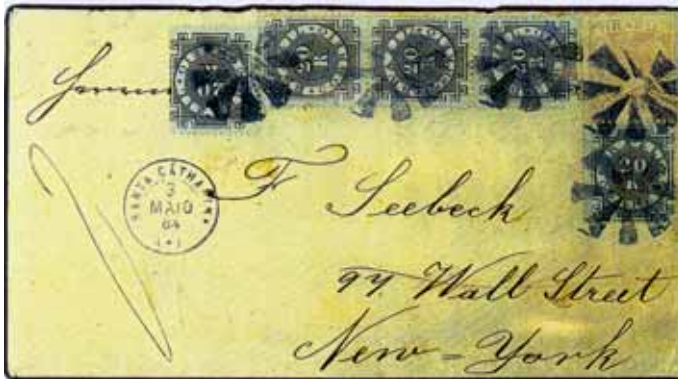 20 20 20 20
R
Herrn
20
R
SANTA CATHARINA
3
MAIO
84
F Seebeck
97 Wall Street
New-York